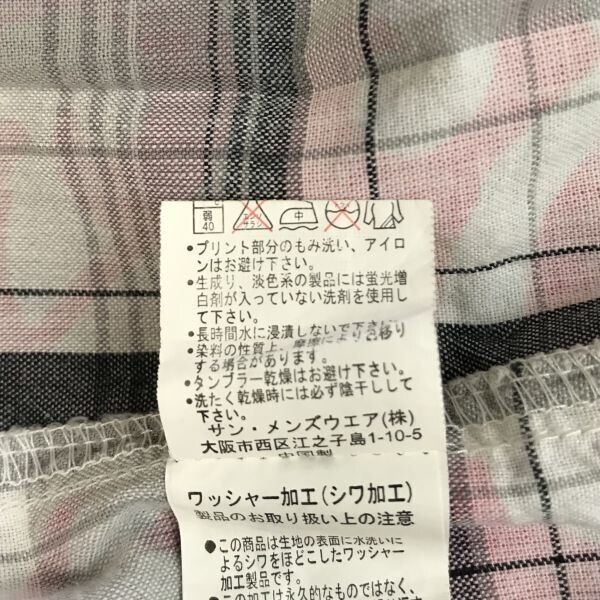 弱
40
エンソ
サラシ
中
•プリント部分のもみ洗い、アイロ
ンはお避け下さい。
•生成り、淡色系の製品には蛍光増
白剤が入っていない洗剤を使用し
て下さい。
•長時間水に浸漬しないで下さい。
•染料の性質上、摩擦により色移り
する場合があります。
•タンブラー乾燥はお避け下さい。
•洗たく乾燥時には必ず陰干しして
下さい。
サン・メンズウエア(株)
大阪市西区江之子島1-10-5
中国製
ワッシャー加工(シワ加工)
製品のお取り扱い上の注意
●この商品は生地の表面に水洗いに
よるシワをほどこしたワッシャー
加工製品です。
●この加工は永久的なものではなく、